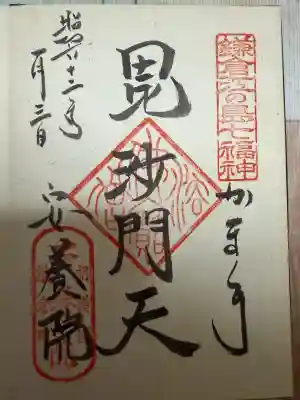 鎌倉江の島七福神
かまくら
毘沙門天
安養院
昭和六十二年
一月三日